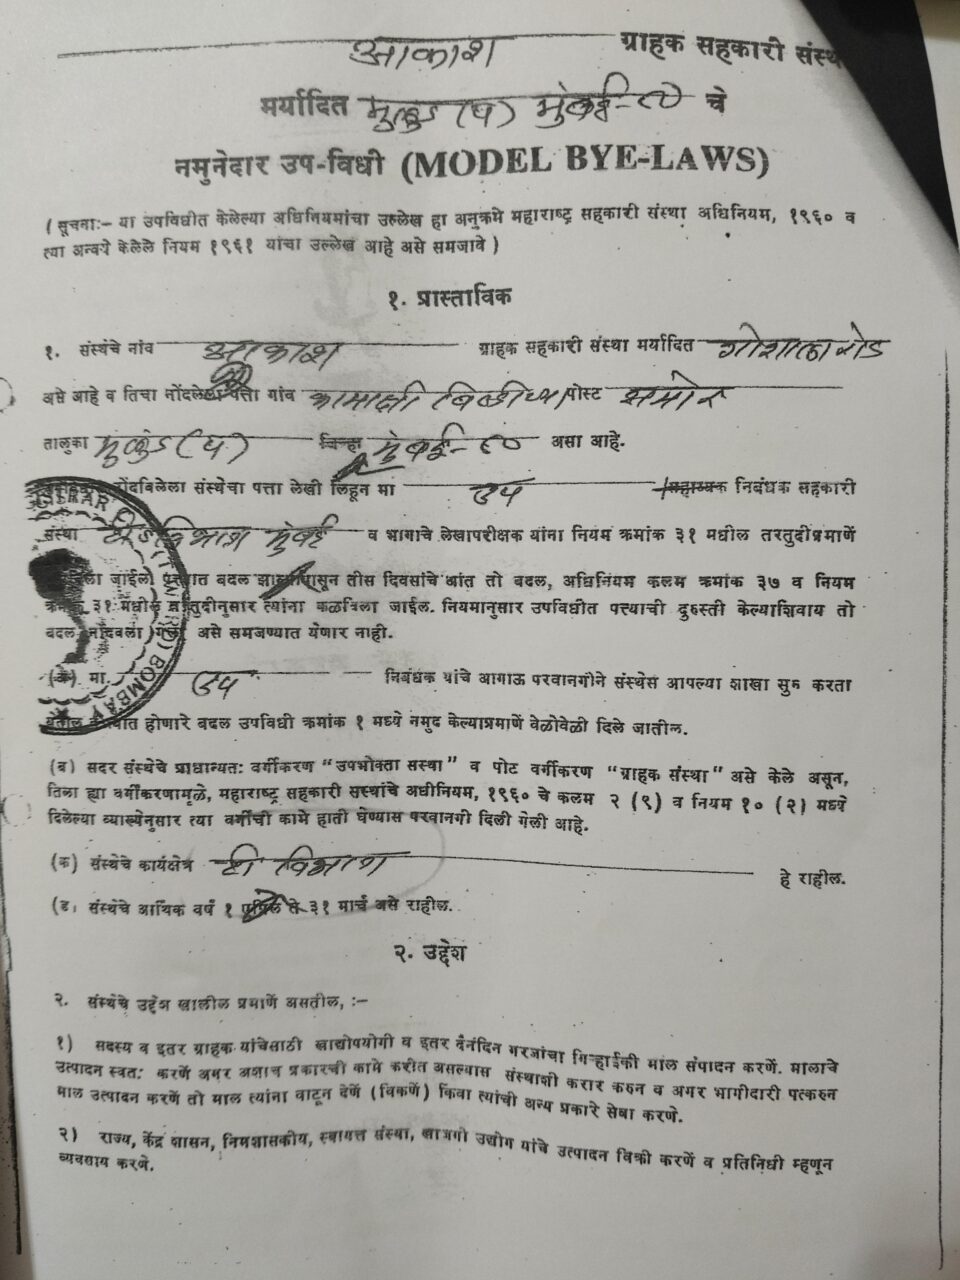 आकाश ग्राहक सहकारी संस्था
मर्यादित मुलुंड (प) मुंबई-८० चे
नमुनेदार उप-विधी (MODEL BYE-LAWS)
( सूचना:- या उपविधीत केलेल्या अधिनियमांचा उल्लेख हा अनुक्रमे महाराष्ट्र सहकारी संस्था अधिनियम, १९६० व
त्या अन्वये केलेले नियम १९६१ यांचा उल्लेख आहे असे समजावे )
१. प्रास्ताविक
१. संस्थेचे नांव आकाश ग्राहक सहकारी संस्था मर्यादित गोशाला रोड
असे आहे व तिचा नोंदलेला पत्ता गांव कामाक्षी बिल्डींग पोस्ट समोर
तालुका मुलुंड (प) जिल्हा मुंबई-८० असा आहे.
नोंदविलेला संस्थेचा पत्ता लेखी लिहून मा उप सहाय्यक निबंधक सहकारी
संस्था टी विभाग मुंबई व भागाचे लेखापरीक्षक यांना नियम क्रमांक ३१ मधील तरतुदीप्रमाणें
जाईल पत्त्यात बदल झाल्यापासून तीस दिवसांचे आंत तो बदल, अधिनियम कलम क्रमांक ३७ व नियम
क्रमांक ३१ मधील तरतुदीनुसार त्यांना कळविला जाईल. नियमानुसार उपविधीत पत्त्याची दुरुस्ती केल्याशिवाय तो
बदल नोंदवला गेला असे समजण्यात येणार नाही.
(अ) मा. उप निबंधक यांचे आगाऊ परवानगीने संस्थेस आपल्या शाखा सुरु करता
येतील होणारे बदल उपविधी क्रमांक १ मध्ये नमुद केल्याप्रमाणें वेळोवेळी दिले जातील.
(ब) सदर संस्थेचे प्राधान्यत: वर्गीकरण "उपभोक्ता सस्था" व पोट वर्गीकरण "ग्राहक संस्था" असे केले असून,
तिला ह्या वर्गीकरणामूळे, महाराष्ट्र सहकारी सस्थांचे अधीनियम, १९६० चे कलम २ (९) व नियम १० (२) मध्ये
दिलेल्या व्याख्येनुसार त्या वर्गाची कामे हाती घेण्यास परवानगी दिली गेली आहे.
(क) संस्थेचे कार्यक्षेत्र टी विभाग हे राहील.
(ड) संस्थेचे आर्थिक वर्ष १ एप्रिल ते ३१ मार्च असे राहील.
२. उद्देश
२. संस्थेचे उद्देश खालील प्रमाणें असतील, :-
१) सदस्य व इतर ग्राहक यांचेसाठी खाद्योपयोगी व इतर दैनंदिन गरजांचा गिऱ्हाईकी माल संपादन करणें. मालाचे
उत्पादन स्वत: करणें अगर अशाच प्रकारची कामे करीत असल्यास संस्थाशी करार करुन व अगर भागीदारी पत्करुन
माल उत्पादन करणें तो माल त्यांना वाटून देणें (विकणें) किंवा त्यांची अन्य प्रकारे सेवा करणे.
२) राज्य, केंद्र शासन, निमशासकीय, स्वायत्त संस्था, खाजगी उद्योग यांचे उत्पादन विक्री करणें व प्रतिनिधी म्हणून
व्यवसाय करणे.
BOMBAY